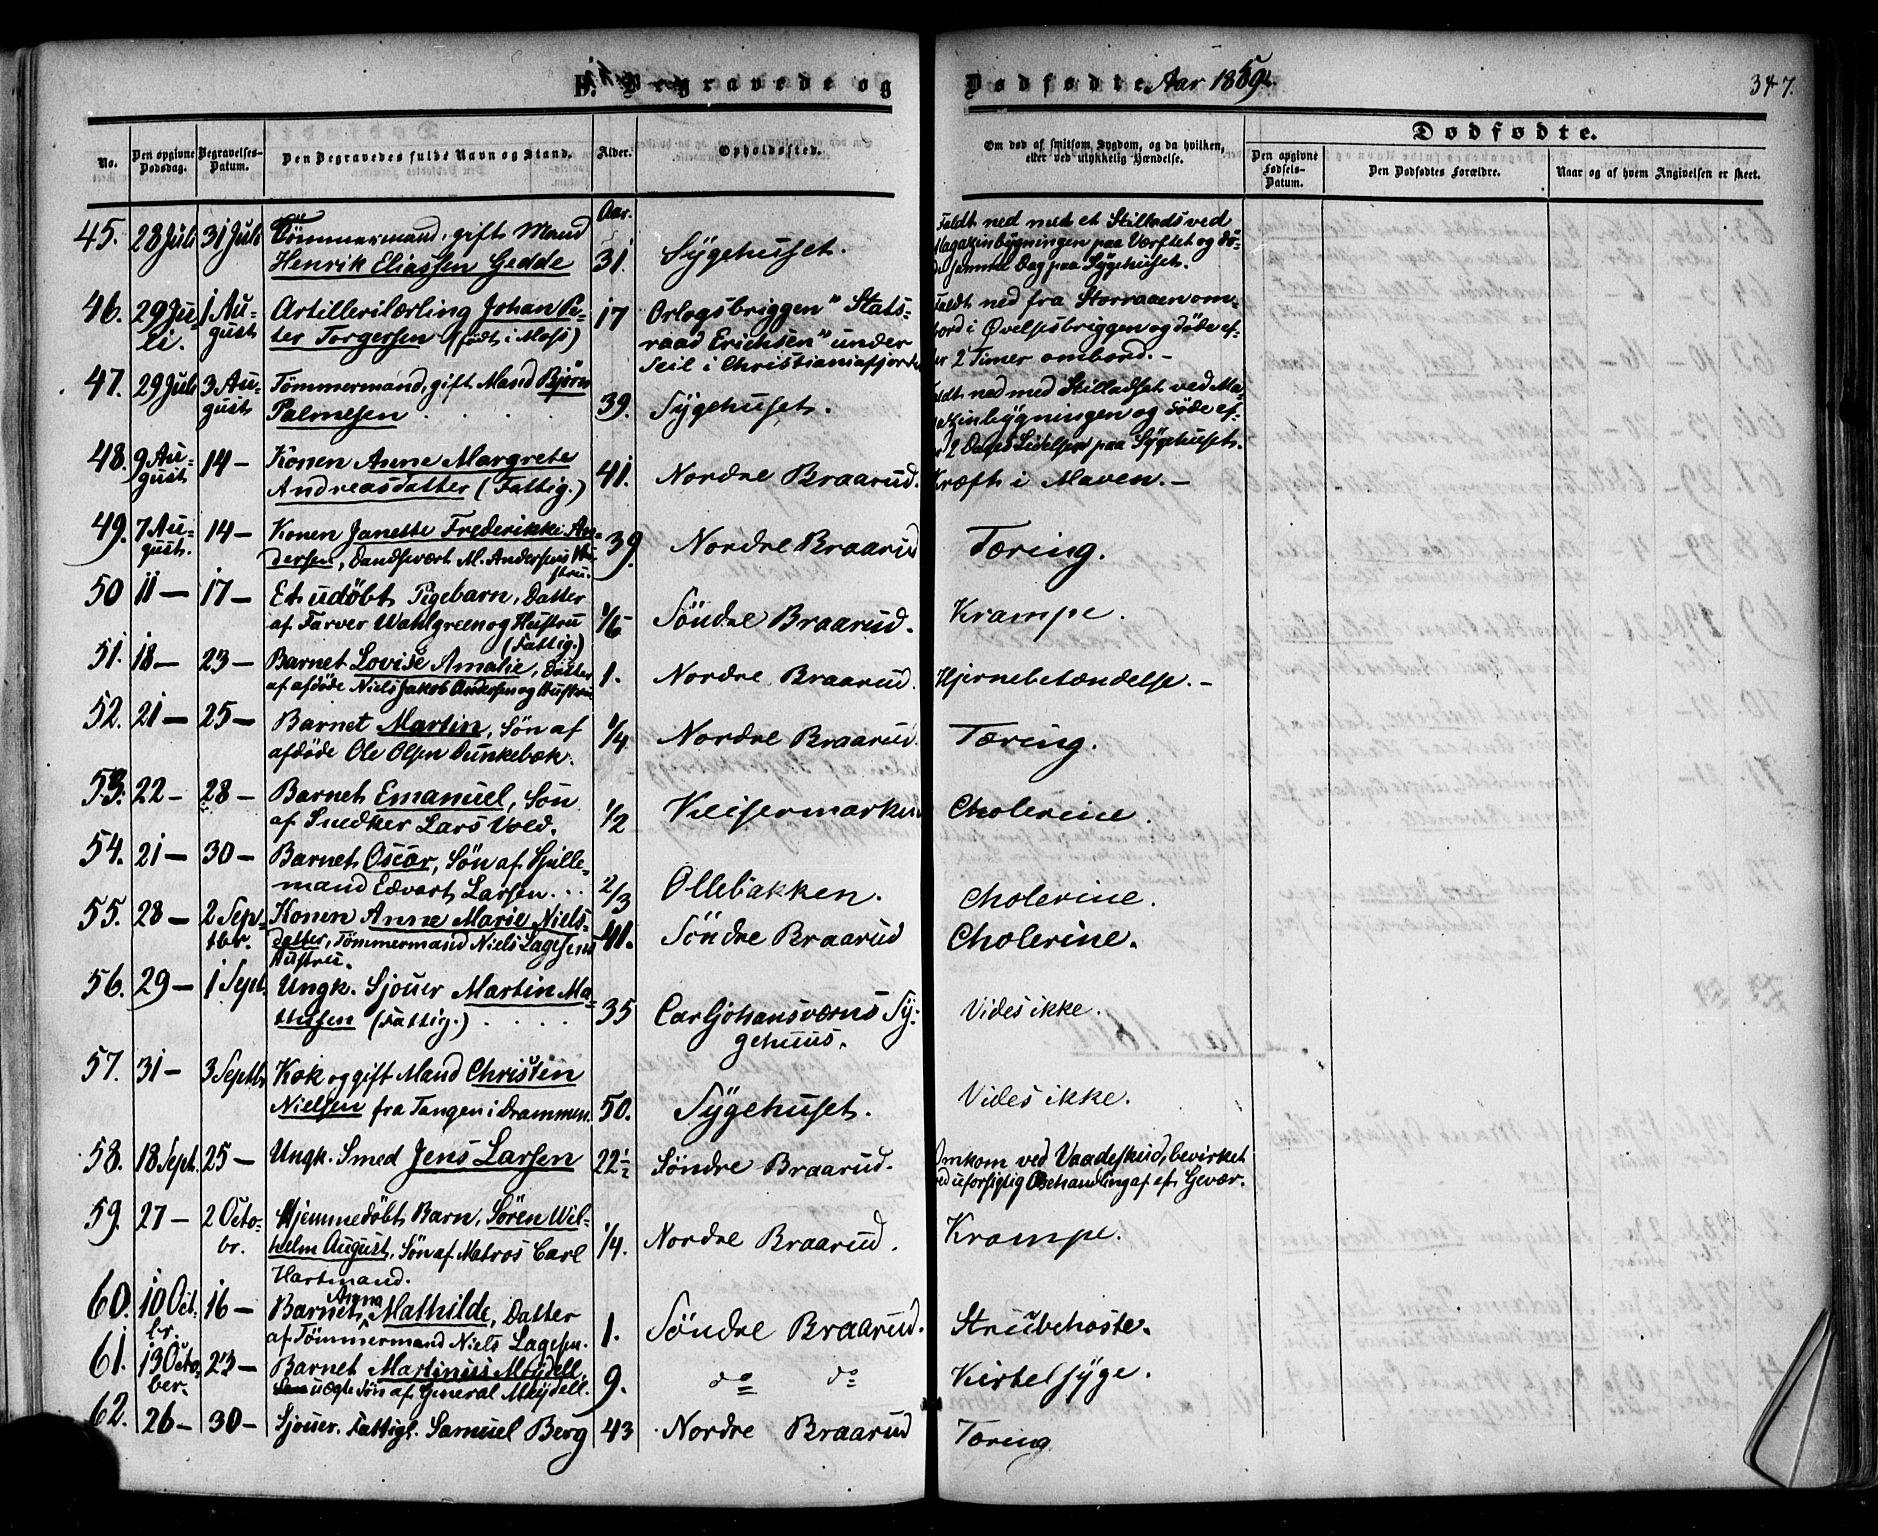 E. Begravede og
Dødfødte. Aar 1859.
347.
No.
Den opgivne Dødsdag.
Begravelses-Datum.
Den Begravedes fulde Navn og Stand.
Alder.
Opholdssted.
Om død af smitsom Sygdom, og da hvilken, eller ved ulykkelig Hændelse.
Dødfødte.
Den opgivne Fødsels-Datum.
Den Dødfødtes Forældre.
Naar og af hvem Angivelsen er skeet.
Aar.
45. 28 Juli 31 Juli Tömmermand, gift Mand
Henrik Eliassen Gedde 31. Sygehuset.
Faldt ned med et Stillads ved
Magazinbygningen paa Værftet og dö-
de samme Dag paa Sygehuset.
46. 29 Ju-
li. 1 Au-
gust Artillerilærling Johan Pe-
ter Torgersen (födt i Moss) 17 Orlogsbriggen "Stats-
raad Erichsen" under
Seil i Christianiafjorden
Faldt ned fra Storraaen om-
bord i Øvelsesbriggen og döde ef-
ter 2 Timer ombord. -
47. 29 Juli 3 Au-
gust Tömmermand, gift Mand Björn
Palmesen 39. Sygehuset.
Faldt ned med Stilladset ved Ma-
gazinbygningen og döde ef-
ter 2 Dages Lidelser paa Sygehuset.
48. 9 Au-
gust 14 - Konen Anne Margrete
Andreasdatter (Fattig.) 41. Nordre Braarud. Kræft i Maven. -
49. 7 Au-
gust. 14 - Konen Janette Frederikke An-
dersen, Dandsevært M. Andersens Hu-
stru. 39. Nordre Braarud Tæring.
50 11 - 17 - Et udöbt Pigebarn, Datter
af Farver Wahlgreen og Hustru
(Fattig.) 1/5 Söndre Braarud. Krampe.
51. 18 - 23 - Barnet Lovise Amalie, Datter
af afdöde Niels Jakob Andersen og Hustru 1. Nordre Braarud. Hjernebetændelse. -
52. 21 - 25 - Barnet Martin, Sön af
afdöde Ole Olsen Dunkebæk. 1/4 Nordre Braarud. Tæring.
53. 22 - 28 - Barnet Emanuel, Sön
af Snedker Lars Vold. 1/2 Keisermarken Cholerine.
54. 21 - 30 - Barnet Oscar, Sön af Spille-
mand Edvart Larsen. 2/3 Ollebakken. Cholerine.
55. 28 - 2 Sep-
tbr. Konen Anne Marie Niels-
datter, Tömmermand Niels Lagesens
Hustru. 41. Söndre Braarud Cholerine.
56. 29 - 1 Sept. Ungk. Sjouer Martin Ma-
thisen (Fattig.) 35 Carljohansværns Sy-
gehuus. Vides ikke.
57. 31 - 3 Septbr Kok og gift Mand Christen
Nielsen fra Tangen i Drammen. 50. Sygehuset. Vides ikke.
58. 18 Sept. 25 - Ungk. Smed Jens Larsen 22 1/2 Söndre Braarud.
Omkom ved Vaadeskud, bevirket
ved uforsigtig Behandling af et Gevær.
59. 27 - 2 Octo-
br. Hjemmedöbt Barn, Sören Wil-
helm August, Sön af Matros Carl
Hartmand. 1/4. Nordre Braarud. Krampe.
60. 10 Oct.
br. 16 - Barnet Anna Mathilde, Datter
af Tömmermand Niels Lagesen. 1. Söndre Braarud. Strubehoste.
61. 13 Octo-
ber. 23 - Barnet Martinus Meydell,
uægte Sön af General Meydell. 9. do do Kirtelsyge.
62. 26 - 30 - Sjouer. Fattigl. Samuel Berg 43 Nordre Braarud Tæring